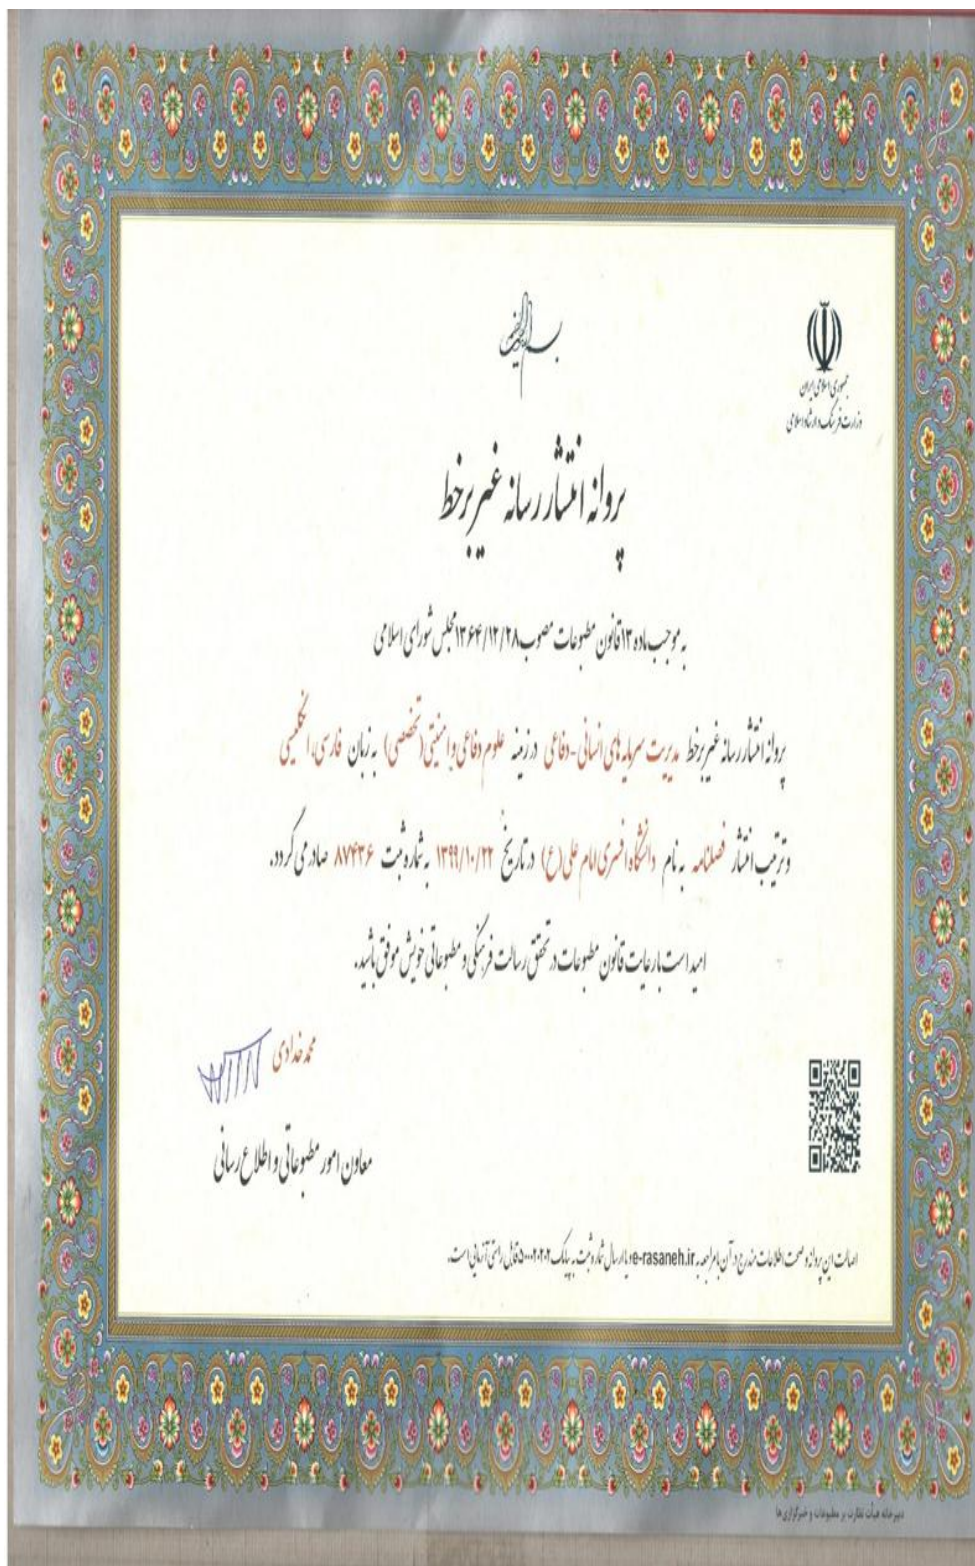 بسم الله الرحمن الرحیم
جمهوری اسلامی ایران
وزارت فرهنگ و ارشاد اسلامی
پروانه انتشار رسانه غیر برخط
به موجب ماده ۱۳ قانون مطبوعات مصوب ۱۳۶۴/۱۲/۲۸ مجلس شورای اسلامی
پروانه انتشار رسانه غیر برخط مدیریت سرمایه های انسانی-دفاعی در زمینه علوم دفاعی و امنیتی (تخصصی) به زبان فارسی، انگلیسی
و ترتیب انتشار فصلنامه به نام دانشگاه افسری امام علی (ع) در تاریخ ۱۳۹۹/۱۰/۲۲ به شماره ثبت ۸۷۴۳۶ صادر می گردد.
امید است با رعایت قانون مطبوعات در تحقق رسالت فرهنگی و مطبوعاتی خویش موفق باشید.
محمد خدادی
معاون امور مطبوعاتی و اطلاع رسانی
اصالت این پروانه و صحت اطلاعات مندرج در آن با مراجعه به e-rasaneh.ir و یا ارسال شماره ثبت به پیامک ۵۰۰۰۲۰۲۰۲ قابل راستی آزمایی است.
دبیرخانه هیأت نظارت بر مطبوعات و خبرگزاری ها